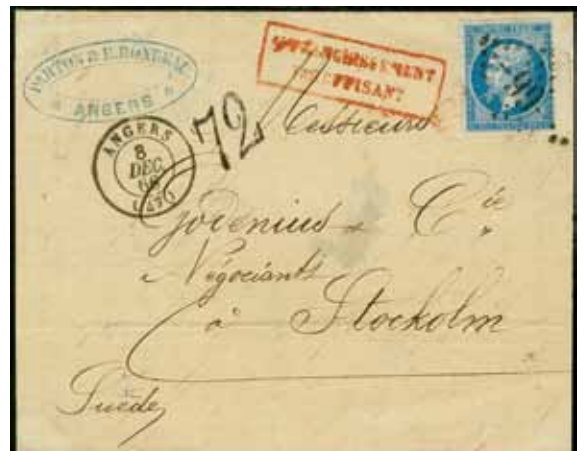 ANGERS
AFFRANCHISSEMENT
INSUFFISANT
ANGERS
8
DEC
(47)
72
Messieurs
Godenius & Cie
Négociants
à Stockolm
Suède